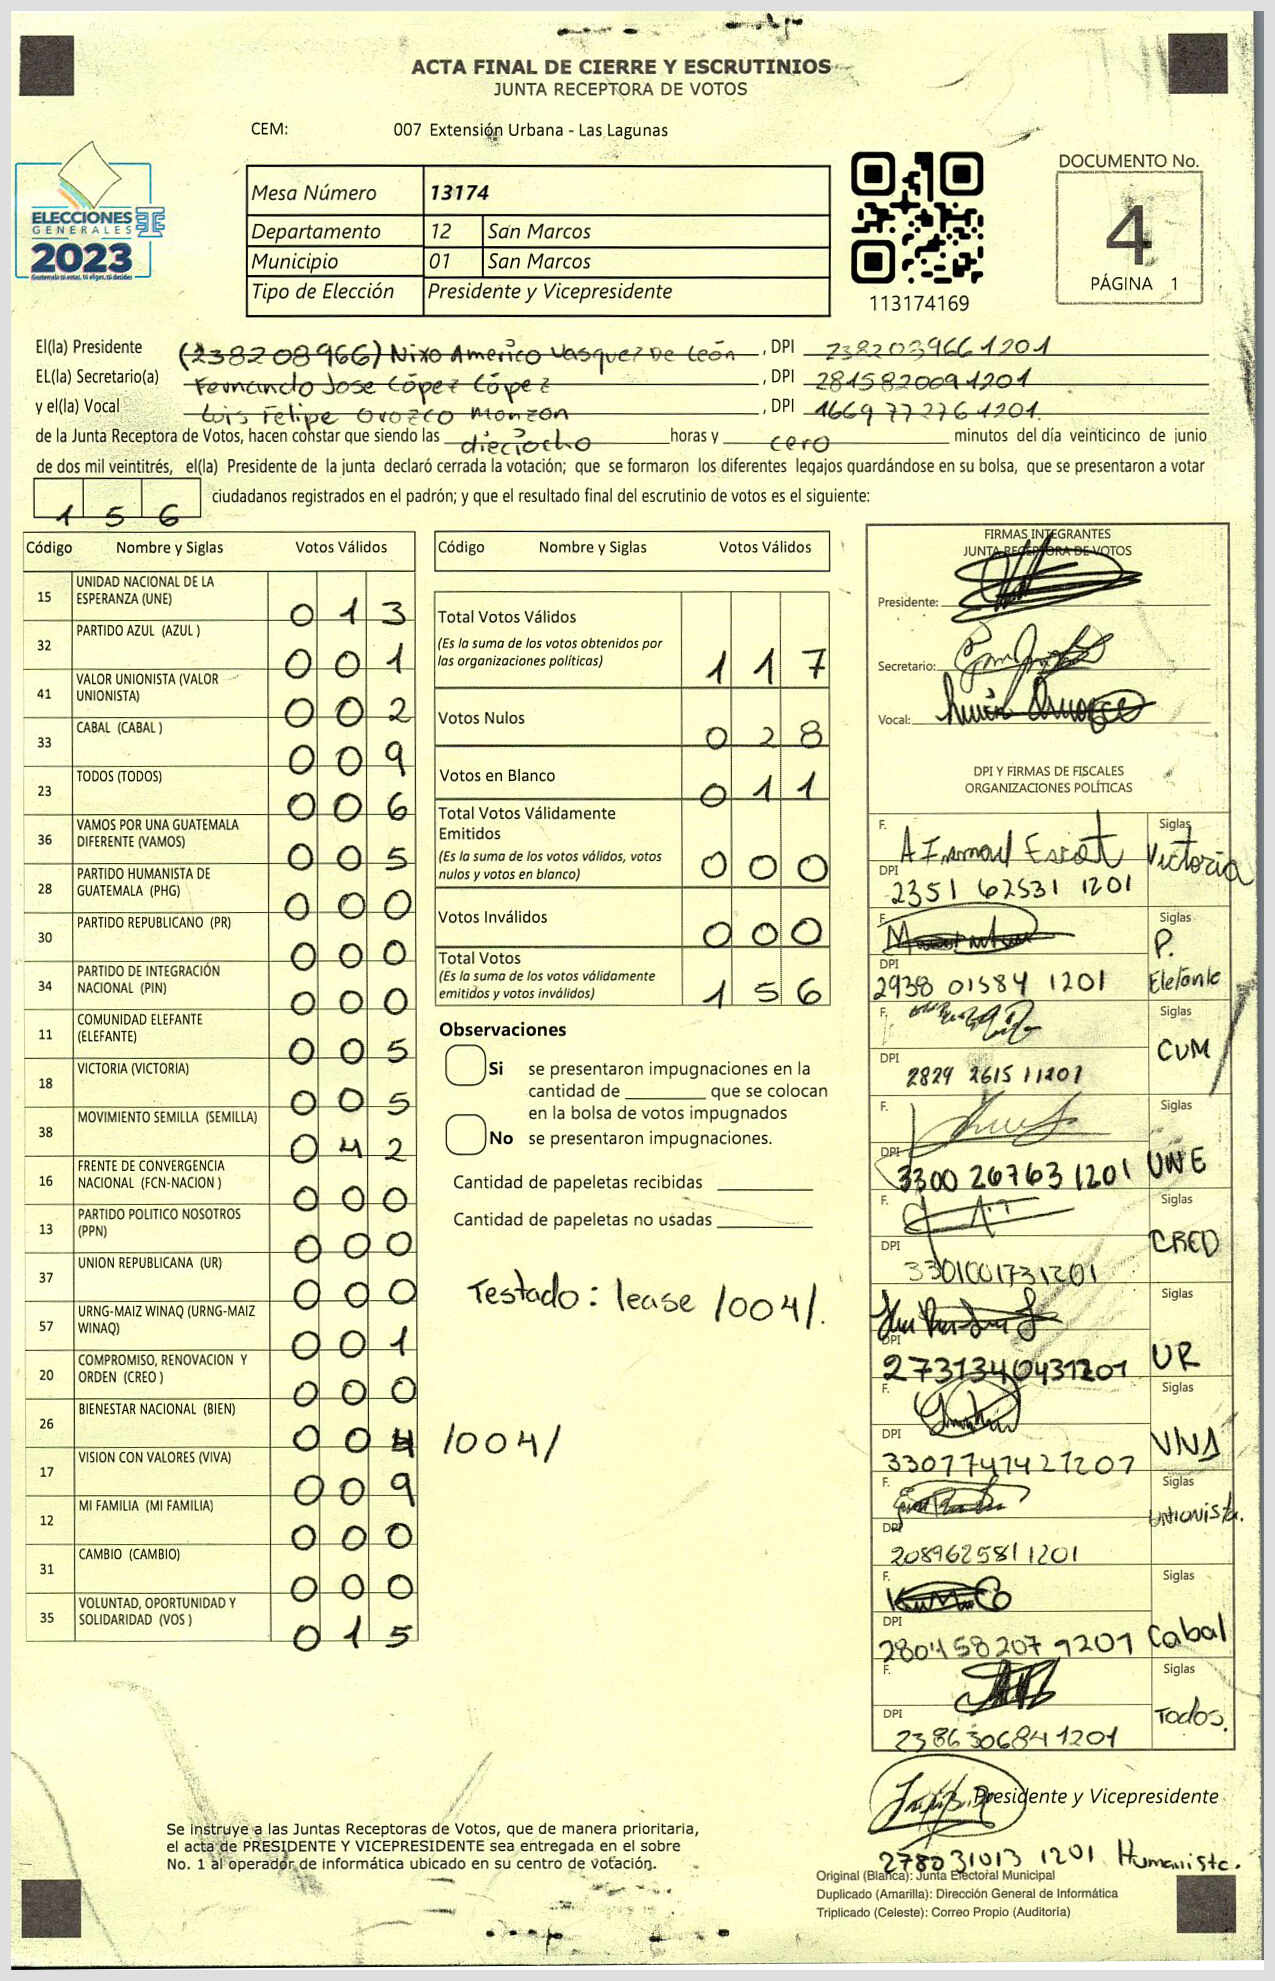 ACTA FINAL DE CIERRE Y ESCRUTINIOS
JUNTA RECEPTORA DE VOTOS
CEM: 007 Extensión Urbana - Las Lagunas
ELECCIONES
GENERALES
2023
Mesa Número 13174
Departamento 12 San Marcos
Municipio 01 San Marcos
Tipo de Elección Presidente y Vicepresidente
113174169
DOCUMENTO No.
4
PÁGINA 1
El(la) Presidente (238208966) Nixo Americo Vasquez De León, DPI 2382039661201
EL(la) Secretario(a) Fernando Jose López López, DPI 2815820091201
y el(la) Vocal Luis Felipe Orozco Monzón, DPI 1669772761201
de la Junta Receptora de Votos, hacen constar que siendo las dieciocho horas y cero minutos del día veinticinco de junio
de dos mil veintitrés, el(la) Presidente de la junta declaró cerrada la votación; que se formaron los diferentes legajos guardándose en su bolsa, que se presentaron a votar
156 ciudadanos registrados en el padrón; y que el resultado final del escrutinio de votos es el siguiente:
Código Nombre y Siglas Votos Válidos
15 UNIDAD NACIONAL DE LA ESPERANZA (UNE) 013
32 PARTIDO AZUL (AZUL ) 001
41 VALOR UNIONISTA (VALOR UNIONISTA) 002
33 CABAL (CABAL ) 009
23 TODOS (TODOS) 006
36 VAMOS POR UNA GUATEMALA DIFERENTE (VAMOS) 005
28 PARTIDO HUMANISTA DE GUATEMALA (PHG) 000
30 PARTIDO REPUBLICANO (PR) 000
34 PARTIDO DE INTEGRACIÓN NACIONAL (PIN) 000
11 COMUNIDAD ELEFANTE (ELEFANTE) 005
18 VICTORIA (VICTORIA) 005
38 MOVIMIENTO SEMILLA (SEMILLA) 042
16 FRENTE DE CONVERGENCIA NACIONAL (FCN-NACION ) 000
13 PARTIDO POLITICO NOSOTROS (PPN) 000
37 UNION REPUBLICANA (UR) 000
57 URNG-MAIZ WINAQ (URNG-MAIZ WINAQ) 001
20 COMPROMISO, RENOVACION Y ORDEN (CREO ) 000
26 BIENESTAR NACIONAL (BIEN) 004 /004/
17 VISION CON VALORES (VIVA) 009
12 MI FAMILIA (MI FAMILIA) 000
31 CAMBIO (CAMBIO) 000
35 VOLUNTAD, OPORTUNIDAD Y SOLIDARIDAD (VOS ) 015
Código Nombre y Siglas Votos Válidos
Total Votos Válidos 117
(Es la suma de los votos obtenidos por
las organizaciones políticas)
Votos Nulos 028
Votos en Blanco 011
Total Votos Válidamente
Emitidos 000
(Es la suma de los votos válidos, votos
nulos y votos en blanco)
Votos Inválidos 000
Total Votos 156
(Es la suma de los votos válidamente
emitidos y votos inválidos)
Observaciones
Si se presentaron impugnaciones en la
cantidad de ________ que se colocan
en la bolsa de votos impugnados
No se presentaron impugnaciones.
Cantidad de papeletas recibidas
Cantidad de papeletas no usadas
Testado: lease /004/.
FIRMAS INTEGRANTES
JUNTA RECEPTORA DE VOTOS
Presidente:
Secretario:
Vocal:
DPI Y FIRMAS DE FISCALES
ORGANIZACIONES POLÍTICAS
F. Siglas Victoria
DPI 2351 62531 1201
F. Siglas P. Elefante
DPI 2938 01584 1201
F. Siglas CUM
DPI 2829 2615 11201
F. Siglas UNE
DPI 3300 26763 1201
F. Siglas CREO
DPI 3301001731201
Siglas UR
DPI 2731340431201
F. Siglas VIVA
DPI 3307747421207
F. Siglas Unionista.
DPI 2089625811201
F. Siglas Cabal
DPI 2804582079201
F. Siglas Todos.
DPI 2386306841201
Presidente y Vicepresidente
278031013 1201 Humanista.
Se instruye a las Juntas Receptoras de Votos, que de manera prioritaria,
el acta de PRESIDENTE Y VICEPRESIDENTE sea entregada en el sobre
No. 1 al operador de informática ubicado en su centro de votación.
Original (Blanca): Junta Electoral Municipal
Duplicado (Amarilla): Dirección General de Informática
Triplicado (Celeste): Correo Propio (Auditoría)